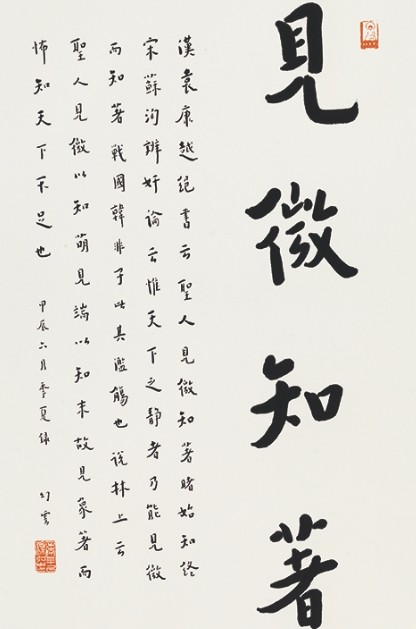 見微知著
漢袁康越絕書云聖人見微知著睹始知終
宋蘇洵辨奸論云惟天下之靜者乃能見微
而知著戰國韓非子此其濫觴也說林上云
聖人見微以知萌見端以知末故見象著而
怖知天下不足也
甲辰六月季夏錄 幻雲